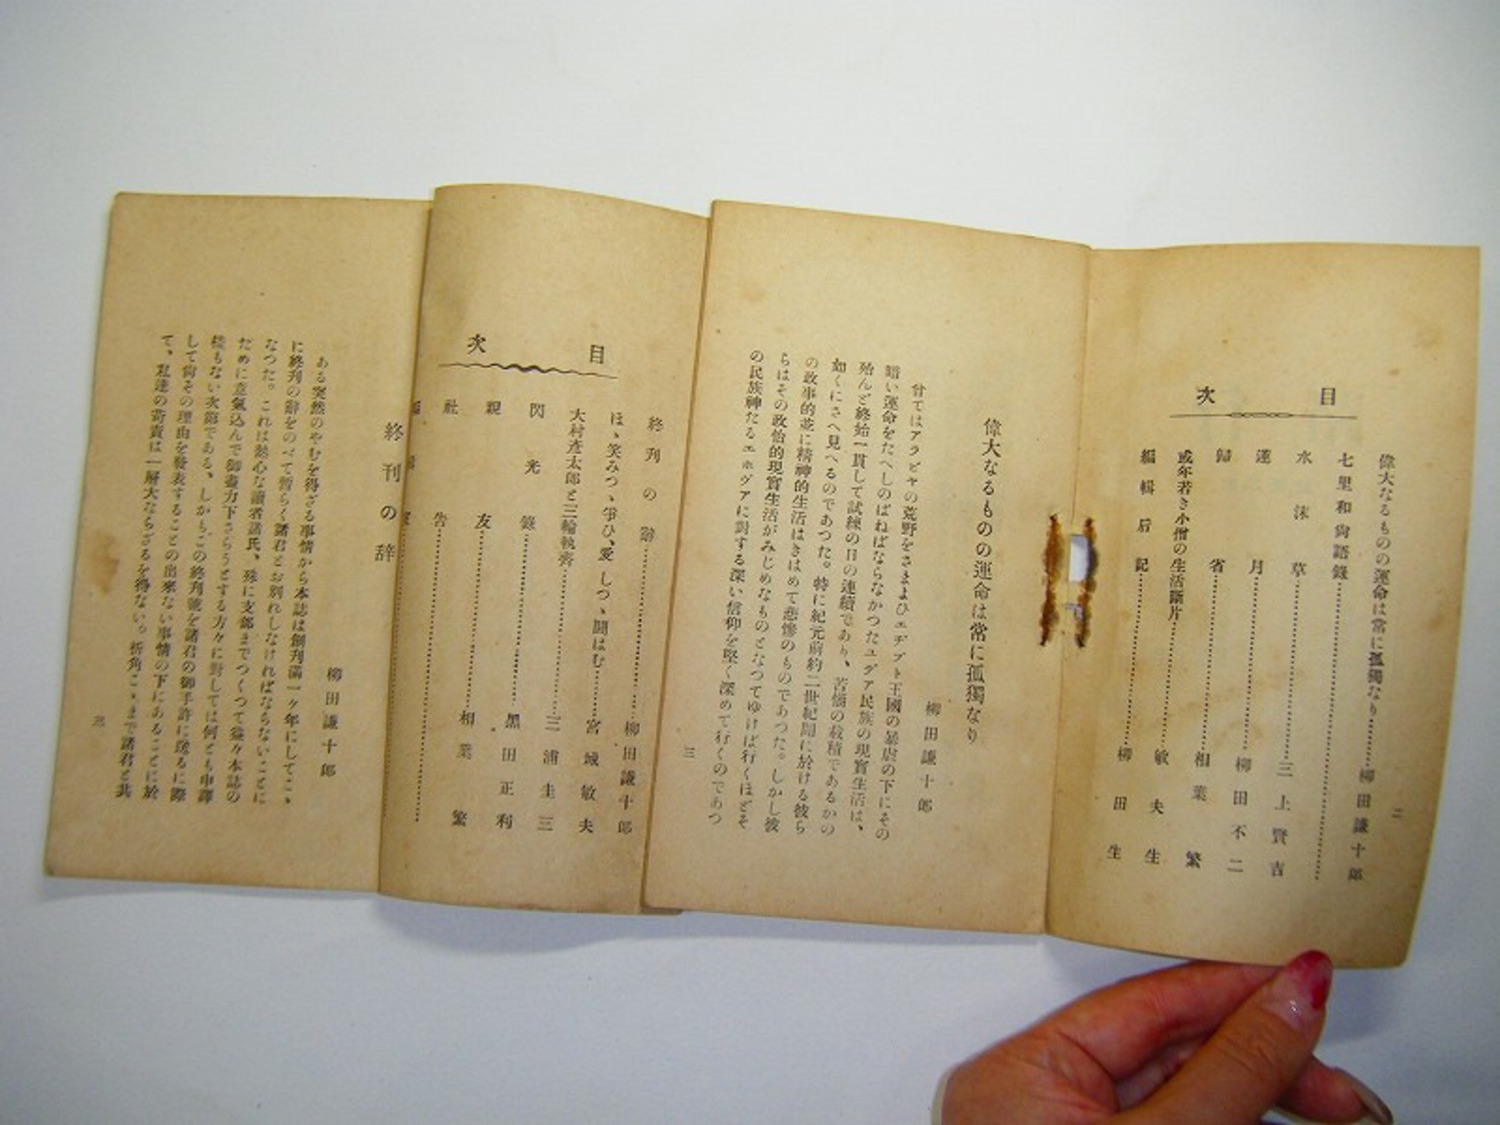 目次
偉大なるものの運命は常に孤獨なり 柳田謙十郎
七里和尚語錄
水沫草 三上賢吉
蓮月 柳田不二
歸省 相葉繁
或年若き小僧の生活斷片 敏夫生
編輯后記 柳田生
二
偉大なるものの運命は常に孤獨なり
柳田謙十郎
曾てはアラビヤの荒野をさまよひエヂプト王國の暴虐の下にその
暗い運命をたへしのばねばならなかつたユダア民族の現實生活は、
殆んど終始一貫して試練の日の連續であり、苦惱の裁積であるかの
如くにさへ見へるのであつた。特に紀元前約二世紀間に於ける彼ら
の政事的並に精神的生活はきはめて悲慘のものであつた。しかし彼
らはその政治的現實生活がみじめなものとなつてゆけば行くほどそ
の民族神たるエホヴアに對する深い信仰を堅く深めて行くのであつ
三
目次
終刊の辭 柳田謙十郎
ほゝ笑みつゝ爭ひ、愛しつゝ鬪はむ 宮城敏夫
大村彥太郎と三輪執齊 三浦圭三
閃光錄 黑田正利
親友 相葉繁
社告
終刊の辞
柳田謙十郎
ある突然のやむを得ざる事情から本誌は創刊滿一ケ年にしてこゝ
に終刊の辭をのべて暫らく諸君とお別れしなければならないことに
なつた。これは熱心な讀者諸氏、殊に支部までつくつて益々本誌の
ために意氣込んで御盡力下さらうとする方々に對しては何とも申譯
樣もない次第である、しかもこの終刊號を諸君の御手許に送るに際
して尙その理由を發表することの出來ない事情の下にあることに於
て、私達の苛責は一層大ならざるを得ない。折角こゝまで諸君と共
三